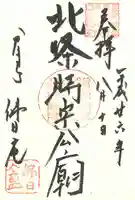 奉拝
平成廿六年
八月十日
北条時宗公廟
佛日庵